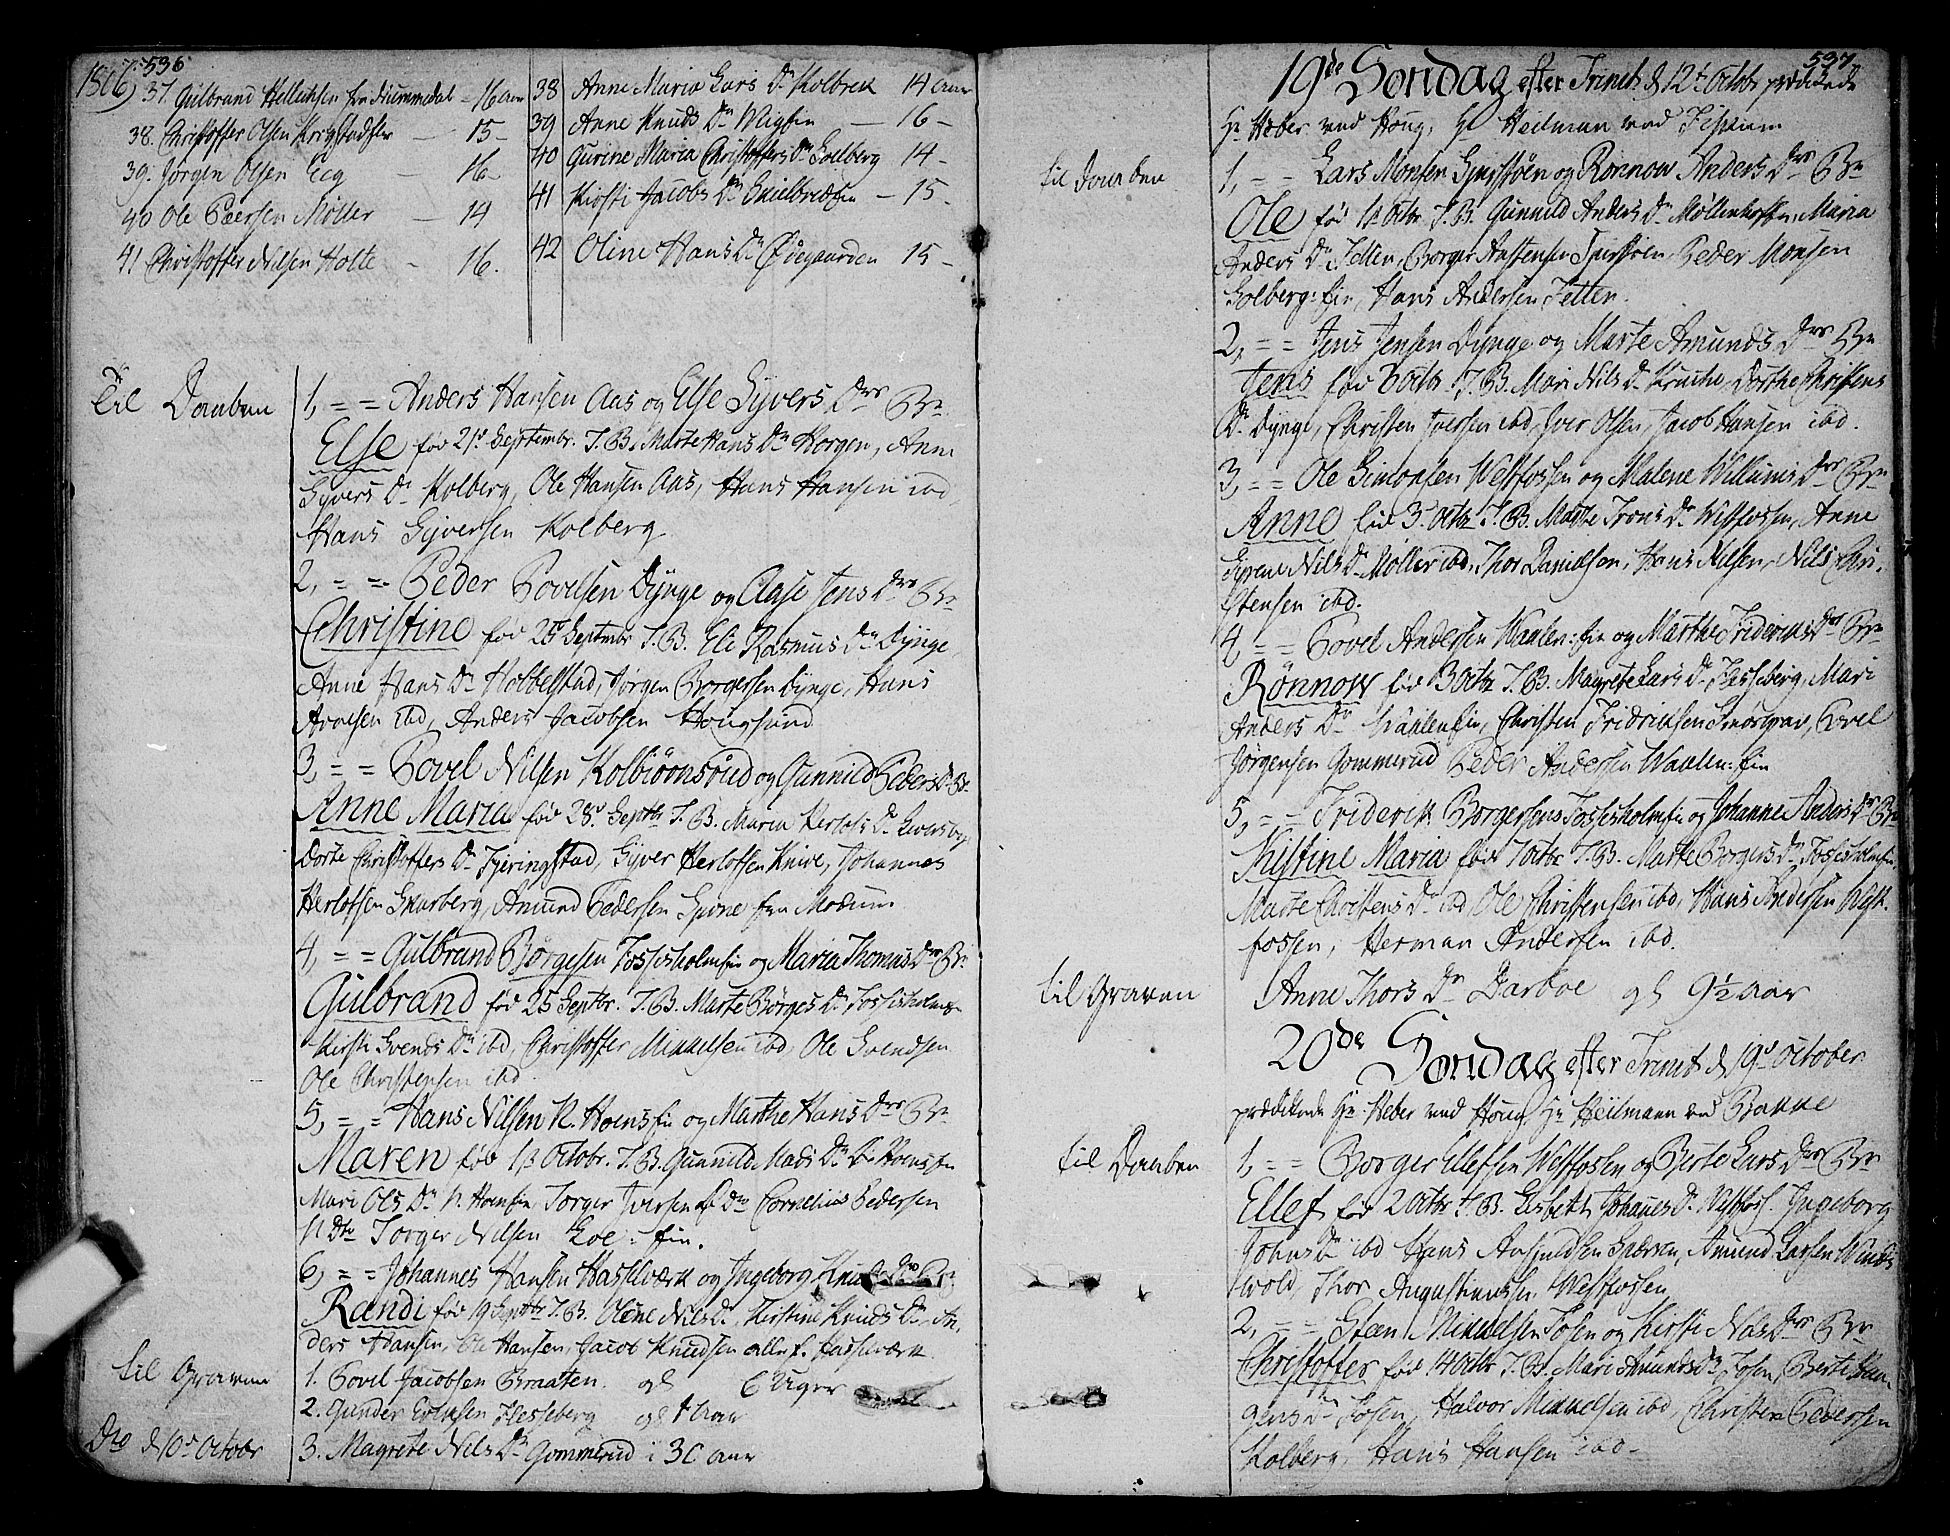 1806, 536
37. Gulbrand Hellichsen fra Nummedal - 16 aar
38. Christoffer Olsen Krogstadfier - 15 -
39. Jørgen Olsen Eeg - 16
40 Ole Peersen Møller - 14
41 Christoffer Nilsen Holte - 16.
38 Anne Maria Lars Dr Kolbrek 14 aar
39 Anne Knuds Dr - 16 -
40 Gurine Maria Christoffers Dr Solberg 14 -
41 Kirsti Jacobs Dr - 15 -
42 Oline Hans Dr Ødegaarden 15 -
Til Daaben
1, = = Anders Hansen Aas og Else Syvers Drs Bn
Else fød 21d Septembr. T. B. Marte Hans Dr Horgen, Anne
Syvers Dr Kolberg, Ole Hansen Aas, Hans Hansen ibd,
Hans Syversen Kolberg
2, = = Peder Povelsen Dynge og Aase Jens Drs Bn
Christine fød 25d Septembr T. B. Eli Rasmus Dr Dynge,
Anne Hans Dr Hobbelstad, Jørgen Borgersen Dynge, Hans
ibd, Anders Jacobsen Hougsund
3, = = Povel Nilsen Kolbiørnsrud og Gunnild Peders D. B.
Anne Maria fød 28d Septbr T. B. Maria Herlofs Dr
Dorte Christoffers Dr Tjeringstad, Syver Herlofsen Knive, Johannes
Herlofsen Skarberg, Amund Pedersen Spone fra Modum
4, = = Gulbrand Børgesen Fossesholmfin og Maria Thomas Drs Bn
Gulbrand fød 25 Septbr. T. B. Marte Børges Dr Fossesholm
Kirsti Svends Dr ibd, Christoffer Mikkelsen ibd, Ole Svendsen
Ole Christensen ibd
5, = = Hans Nilsen N. Hoensfin og Marthe Hans Drs Bn
Maren fød 1/3 Octobr. T. B. Gunnild Mads Dr Hoensfin
Mari Ols Dr N. Hoenfin, Torger Iversen Dto Cornelius Pedersen
N Dto Torger Nilsen Loe: fin.
6, = = Johannes Hansen Hasselværk og Ingeborg Knuds Drs Bn
Randi fød 19 Septbr T. B. Oline Nils Dr, Kirstine Knuds Dr, An-
ders Hansen, Ole Hansen, Jacob Knudsen alle f. Hasselværk
til Graven
1. Povel Jacobsen Braaten gl 6 Uger
2. Gunder Flesseberg gl 1 Aar
Dto d 10d Octobr
3. Magrete Nils Dr Gommerud i 30 aar
537
19de Søndag efter Trinit d 12t Octobr prædikede
Hr Heber ved Houg, Hr Heilman ved Fiskum
til Daaben
1, = = Lars Monsen og Rønnow Anders Drs Bn
Ole fød 1t Octbr T. B. Gunnild Anders Dr Møllenhoffin, Maria
Anders Dr Jellen, Borger Aastensen, Peder Monsen
Solberg: fin, Hans Andersen Jetten.
2, = = Jens Jensen Dynge og Marte Amunds Drs Bn
Jens fød 6 Octbr T. B. Mari Nils Dr, Dorthe Christens
Dr Dynge, Christen Iversen ibd, Iver Olsen, Jacob Hansen ibd.
3, = = Ole Simonsen Westfossen og Malene Willums Drs Bn
Anne fød 3d Octbr T. B. Magte Trons Dr Westfossen, Anne
Syrene Nils Dr Møller ibd, Thor Danielsen, Hans Nilsen, Nils Chri-
stensen ibd.
4, = = Povel Andersen Waalen: fin og Marthe Friderichs Drs Bn
Rønnow fød 3 Octbr T. B. Magrete Lars Dr Flesseberg, Mari
Anders Dr Waalenfin, Christen Fridrichsen Smørgrav, Povel
Jørgensen Gommerud Peder Andersen Waalen: fin
5, = = Friderik Borgersens Fossesholmfin og Johanne Anders Drs Bn
Kistine Maria fød 1 Octbr T. B. Marte Borgers Dr Fossesholmfin
Marte Christens Dr ibd Ole Christensen ibd, Hans Andersen West-
fossen, Herman Andersen ibd.
til Graven
Anne Thors Dr Darboe gl 9½ aar
20de Søndag efter Trinit d 19d October
prædikede Hr: Heber ved Houg, Hr Heilmann ved Bakke
til Daaben
1, = = Borger Ellefsen Westfossen og Berte Lars Drs Bn
Ellef fød 2 Octbr T. B. Lisbeth Johanes Dr Westfoss. Ingeborg
Johns Dr ibd Hans, Amund Larsen
wold, Thor Augustinussen Westfossen
2, = = Steen Mikkelsen Fosen og Kirsti Nils Drs Bn
Christoffer fød 14 Octbr T. B. Mari Amunds Dr Fosen, Berte Haa-
gens Dr Fosen, Halvor Mikkelsen ibd, Christen Pedersen
Kolberg, Hans Hansen ibd -